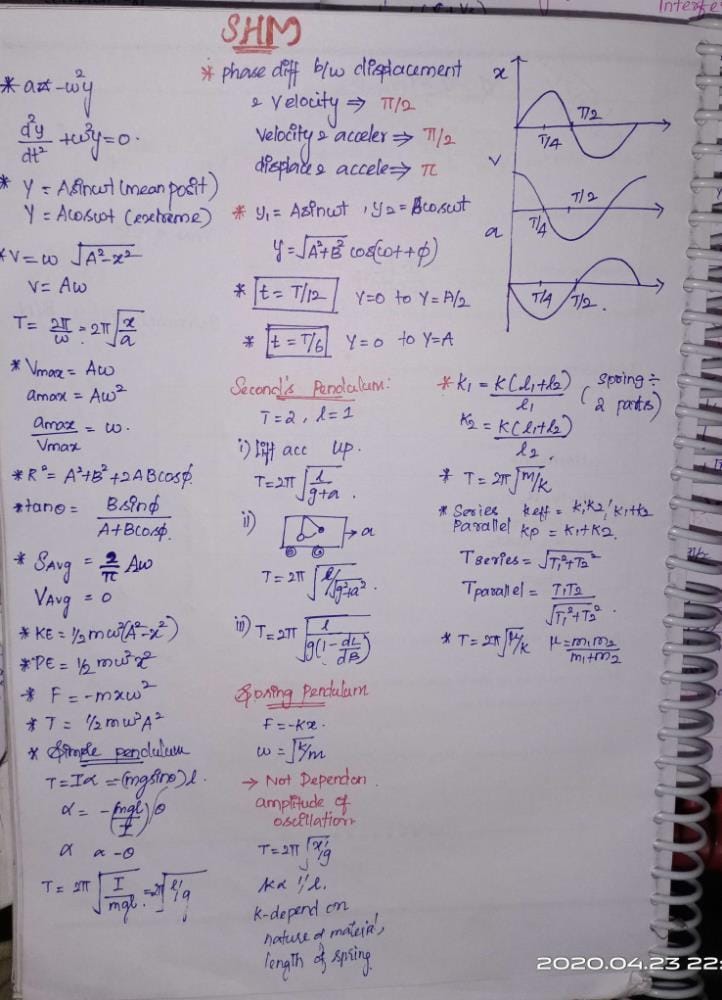 Interfe
SHM
* a = -ω²y
d²y/dt² + ω²y = 0.
* Y = Asinωt (mean posit)
Y = Acosωt (extreme)
* V = ω √(A²-x²)
V = Aω
T = 2π/ω = 2π√(x/a)
* Vmax = Aω
amax = Aω²
amax/Vmax = ω.
* R² = A²+B²+2ABcosφ.
* tanθ = Bsinφ/(A+Bcosφ)
* SAvg = 2/π Aω
VAvg = 0
* KE = 1/2 mω²(A²-x²)
* PE = 1/2 mω²x²
* F = -mxω²
* T = 1/2 mω²A²
* Simple pendulum
T = Iα = (mgsinθ)l.
α = -(mgl/I)θ
α α -θ
T = 2π √(I/mgl) = 2π√(l/g)
* phase diff b/w displacement
& velocity ⇒ π/2
velocity & acceler ⇒ π/2
displace & accele ⇒ π
* y₁ = Asinωt, y₂ = Bcosωt
y = √(A²+B²) cos(ωt+φ)
* t = T/12 Y=0 to Y=A/2
* t = T/6 Y=0 to Y=A
Second's Pendulum:
T=2, l=1
i) lift acc up.
T = 2π √(l/(g+a)).
ii) → a
T = 2π √(l/√(g²+a²)).
iii) T = 2π √(l/(g(1-dL/dB)))
Spring Pendulum
F = -Kx.
ω = √(k/m)
→ Not Depend on
amplitude of
oscillation
T = 2π √(x/g)
k α 1/l.
k-depend on
nature of material,
length of spring
x
T/4 T/2
V
T/4 T/2
a
T/4 T/2.
* K₁ = K(l₁+l₂)/l₁ (spring ÷ 2 parts)
K₂ = K(l₁+l₂)/l₂.
* T = 2π√(m/k)
* Series keff = k₁k₂/k₁+k₂
Parallel kp = k₁+k₂.
Tseries = √(T₁²+T₂²)
Tparallel = T₁T₂/√(T₁²+T₂²).
* T = 2π√(μ/k) μ = m₁m₂/(m₁+m₂)
2020.04.23 22: